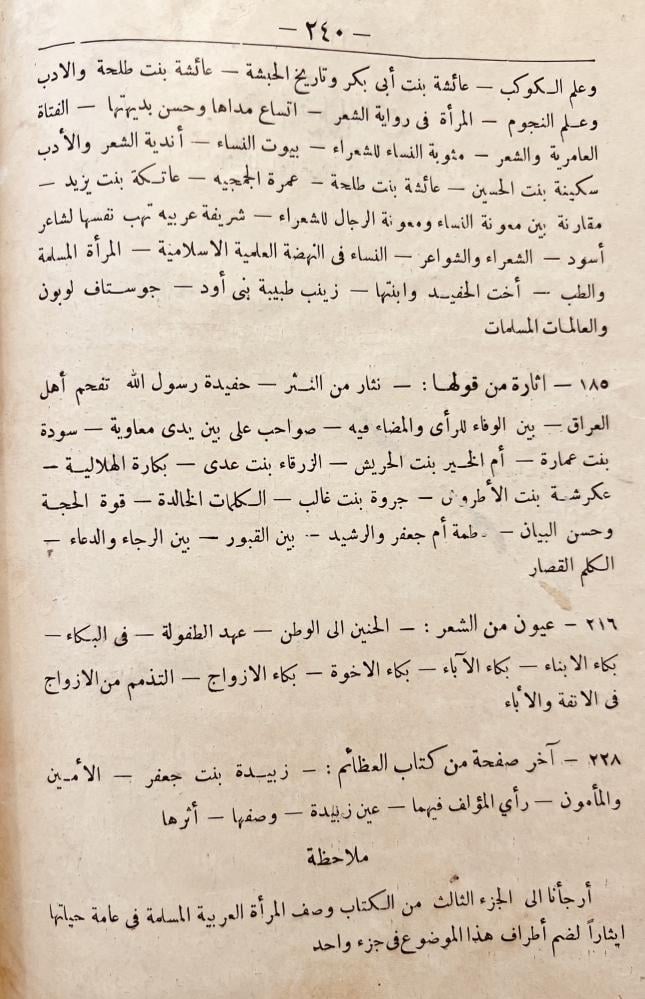 — ٢٤٠ —
وعلم الكوكب — عائشة بنت أبى بكر وتاريخ الحبشة — عائشة بنت طلحة والادب
وعلم النجوم — المرأة فى رواية الشعر — اتساع مداها وحسن بديهتها — الفتاة
العامرية والشعر — مثوبة النساء للشعراء — بيوت النساء — أندية الشعر والأدب
سكينة بنت الحسين — عائشة بنت طلحة — عمرة الجمحيه — عاتكة بنت يزيد —
مقارنة بين معونة النساء ومعونة الرجال للشعراء — شريفة عربيه تهب نفسها لشاعر
أسود — الشعراء والشواعر — النساء فى النهضة العلمية الاسلامية — المرأة المسلمة
والطب — أخت الحفيد وابنتها — زينب طبيبة بنى أود — جوستاف لوبون
والعالمات المسلمات
١٨٥ — اثارة من قولها : — نثار من النثر — حفيدة رسول الله تفحم أهل
العراق — بين الوفاء للرأى والمضاء فيه — صواحب على بين يدى معاوية — سودة
بنت عمارة — أم الخير بنت الحريش — الزرقاء بنت عدى — بكارة الهلالية —
عكرشة بنت الأطروش — جروة بنت غالب — الكلمات الخالدة — قوة الحجة
وحسن البيان — طمة أم جعفر والرشيد — بين القبور — بين الرجاء والدعاء —
الكلم القصار
٢١٦ — عيون من الشعر : — الحنين الى الوطن — عهد الطفولة — فى البكاء —
بكاء الابناء — بكاء الآباء — بكاء الاخوة — بكاء الازواج — التذمم من الازواج
فى الانفة والأباء
٢٢٨ — آخر صفحة من كتاب العظائم : — زبيدة بنت جعفر — الأمين
والمأمون — رأي المؤلف فيهما — عين زبيدة — وصفها — أثرها
ملاحظة
أرجأنا الى الجزء الثالث من الكتاب وصف المرأة العربية المسلمة فى عامة حياتها
ايثاراً لضم أطراف هذا الموضوع فى جزء واحد